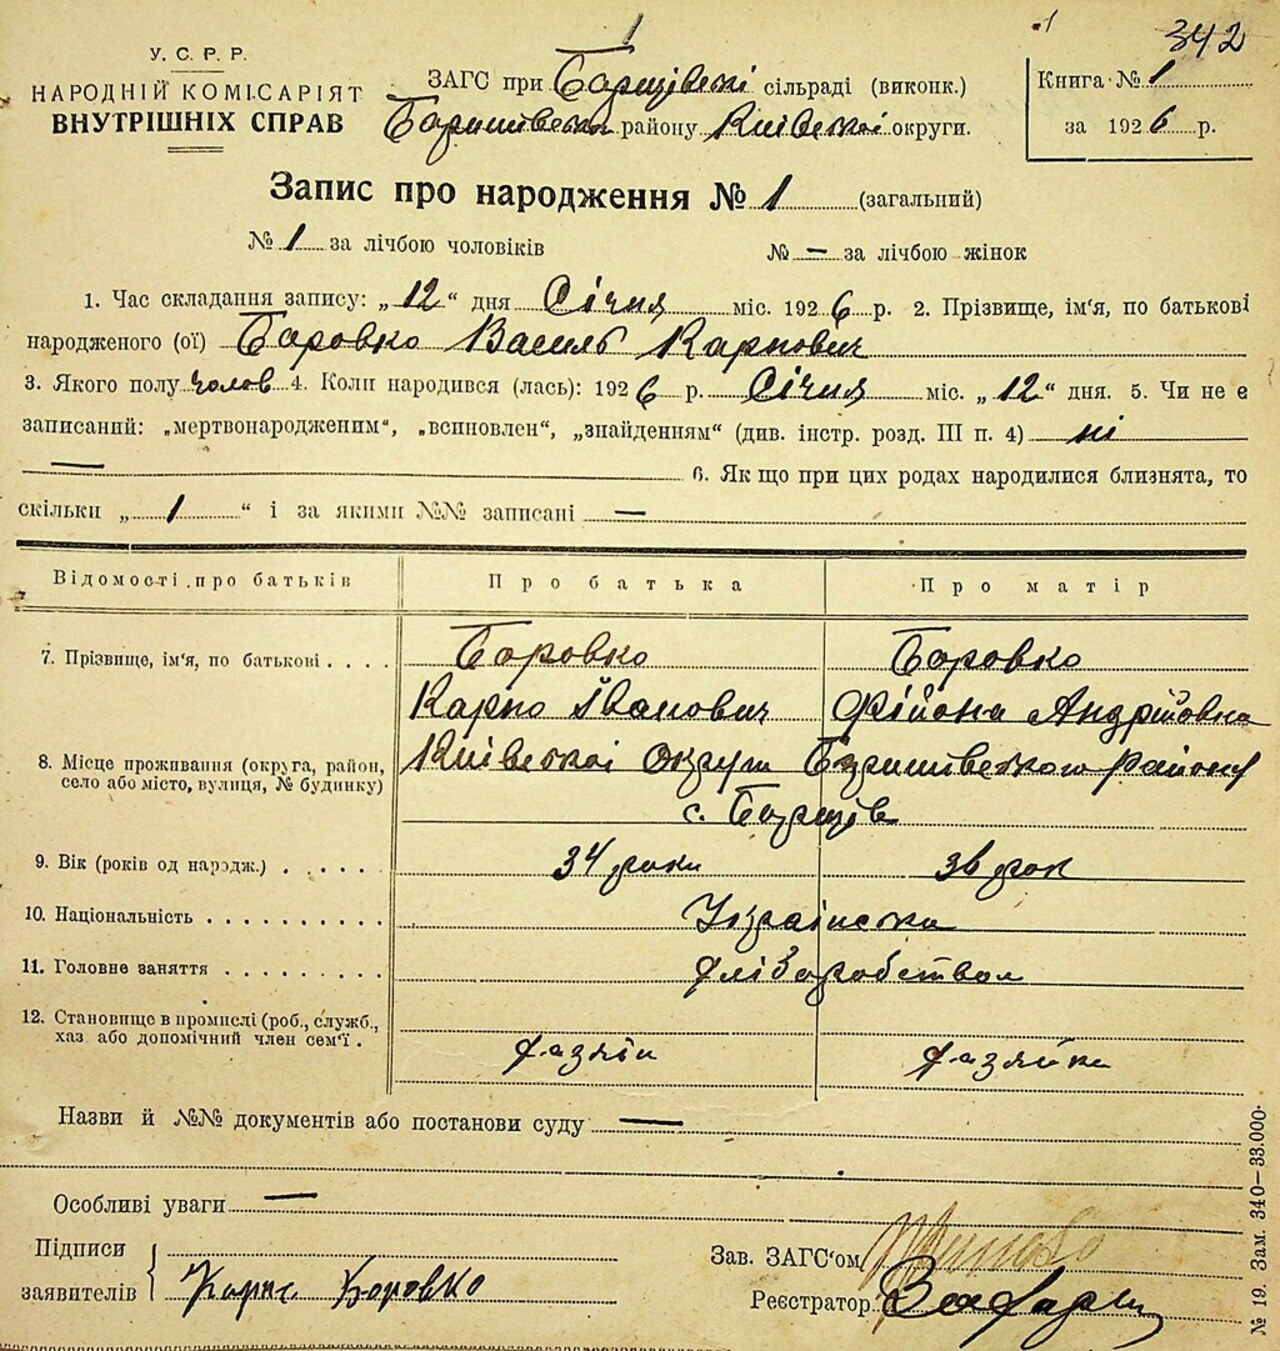 342
1
У. С. Р. Р.
НАРОДНІЙ КОМІСАРІЯТ
ВНУТРІШНІХ СПРАВ
ЗАГС при Борщівскі сільраді (виконк.)
Баришівски району Київскоі округи.
Книга № 1
за 1926 р.
Запис про народження № 1 (загальний)
№ 1 за лічбою чоловіків № — за лічбою жінок
1. Час складання запису: „12“ дня Січня міс. 1926 р. 2. Прізвище, ім'я, по батькові
народженого (ої) Боровко Василь Карпович
3. Якого полу чолов 4. Коли народився (лась): 1926 р. Січня міс. „12“ дня. 5. Чи не є
записаний: „мертвонародженим“, „всиновлен“, „знайденням“ (див. інстр. розд. III п. 4) ні
— 6. Як що при цих родах народилися близнята, то
скільки „1“ і за якими №№ записані —
Відомості про батьків Про батька Про матір
7. Прізвище, ім'я, по батькові . . . . Боровко Боровко
Карпо Іванович Фійона Андрійовна
8. Місце проживання (округа, район, село або місто, вулиця, № будинку) Київскоі Округи Баришівського району
с. Борщів
9. Вік (років од народж.) . . . . . 34 роки 36 рок
10. Національність . . . . . . . . . . Українська
11. Головне заняття . . . . . . . . . хліборобством
12. Становище в промислі (роб., служб.,
хаз або допомічний член сем'ї . хазяїн хазяйка
Назви й №№ документів або постанови суду —
Особливі уваги —
Підписи
заявителів Карпо Боровко
Зав. ЗАГС'ом
Реєстратор
№ 19. Зам. 340—33.000.